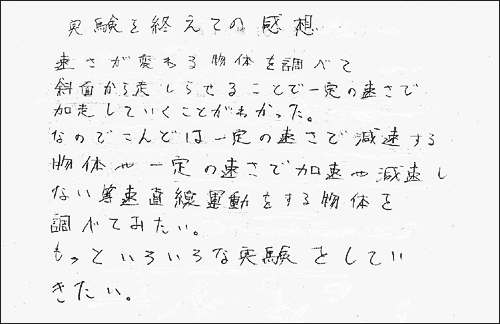 実験を終えての感想
速さが変わる物体を調べて
斜面から走しらせることで一定の速さで
加走していくことがわかった。
なのでこんどは一定の速さで減速する
物体や一定の速さで加速や減速し
ない等速直線運動をする物体を
調べてみたい。
もっといろいろな実験をしてい
きたい。